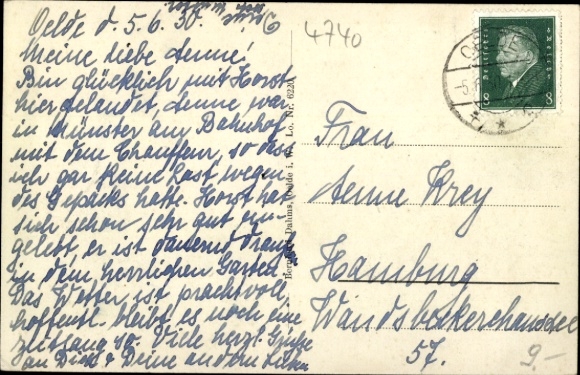 Oelde d. 5.6.30.
Meine liebe Aenne!
Bin glücklich mit Horst
hier gelandet, Aenne war
in Münster am Bahnhof
mit dem Chauffeur, so dass
ich gar keine Last wegen
des Gepäcks hatte. Horst hat
sich schon sehr gut ein-
gelebt, er ist dauernd drauß.
in dem herrlichen Garten.
Das Wetter ist prachtvoll,
hoffentl. bleibt es noch eine
Zeitlang so. Viele herzl. Grüße
an Dich & Deine
4740
Deutsches Reich
8 8
Dahms, Oelde i. W. Lo. Nr. 6220
Frau
Aenne Krey
Hamburg
Wandsbeckerchaussee
57.
9.-